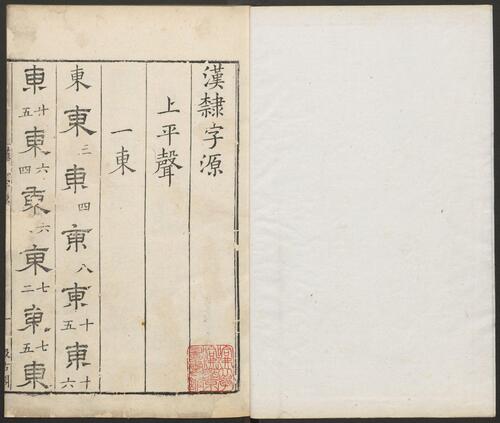 漢隸字源
上平聲
一東
東東三東四東八東十五東十六
東卄五東六四東六東七二東七五東